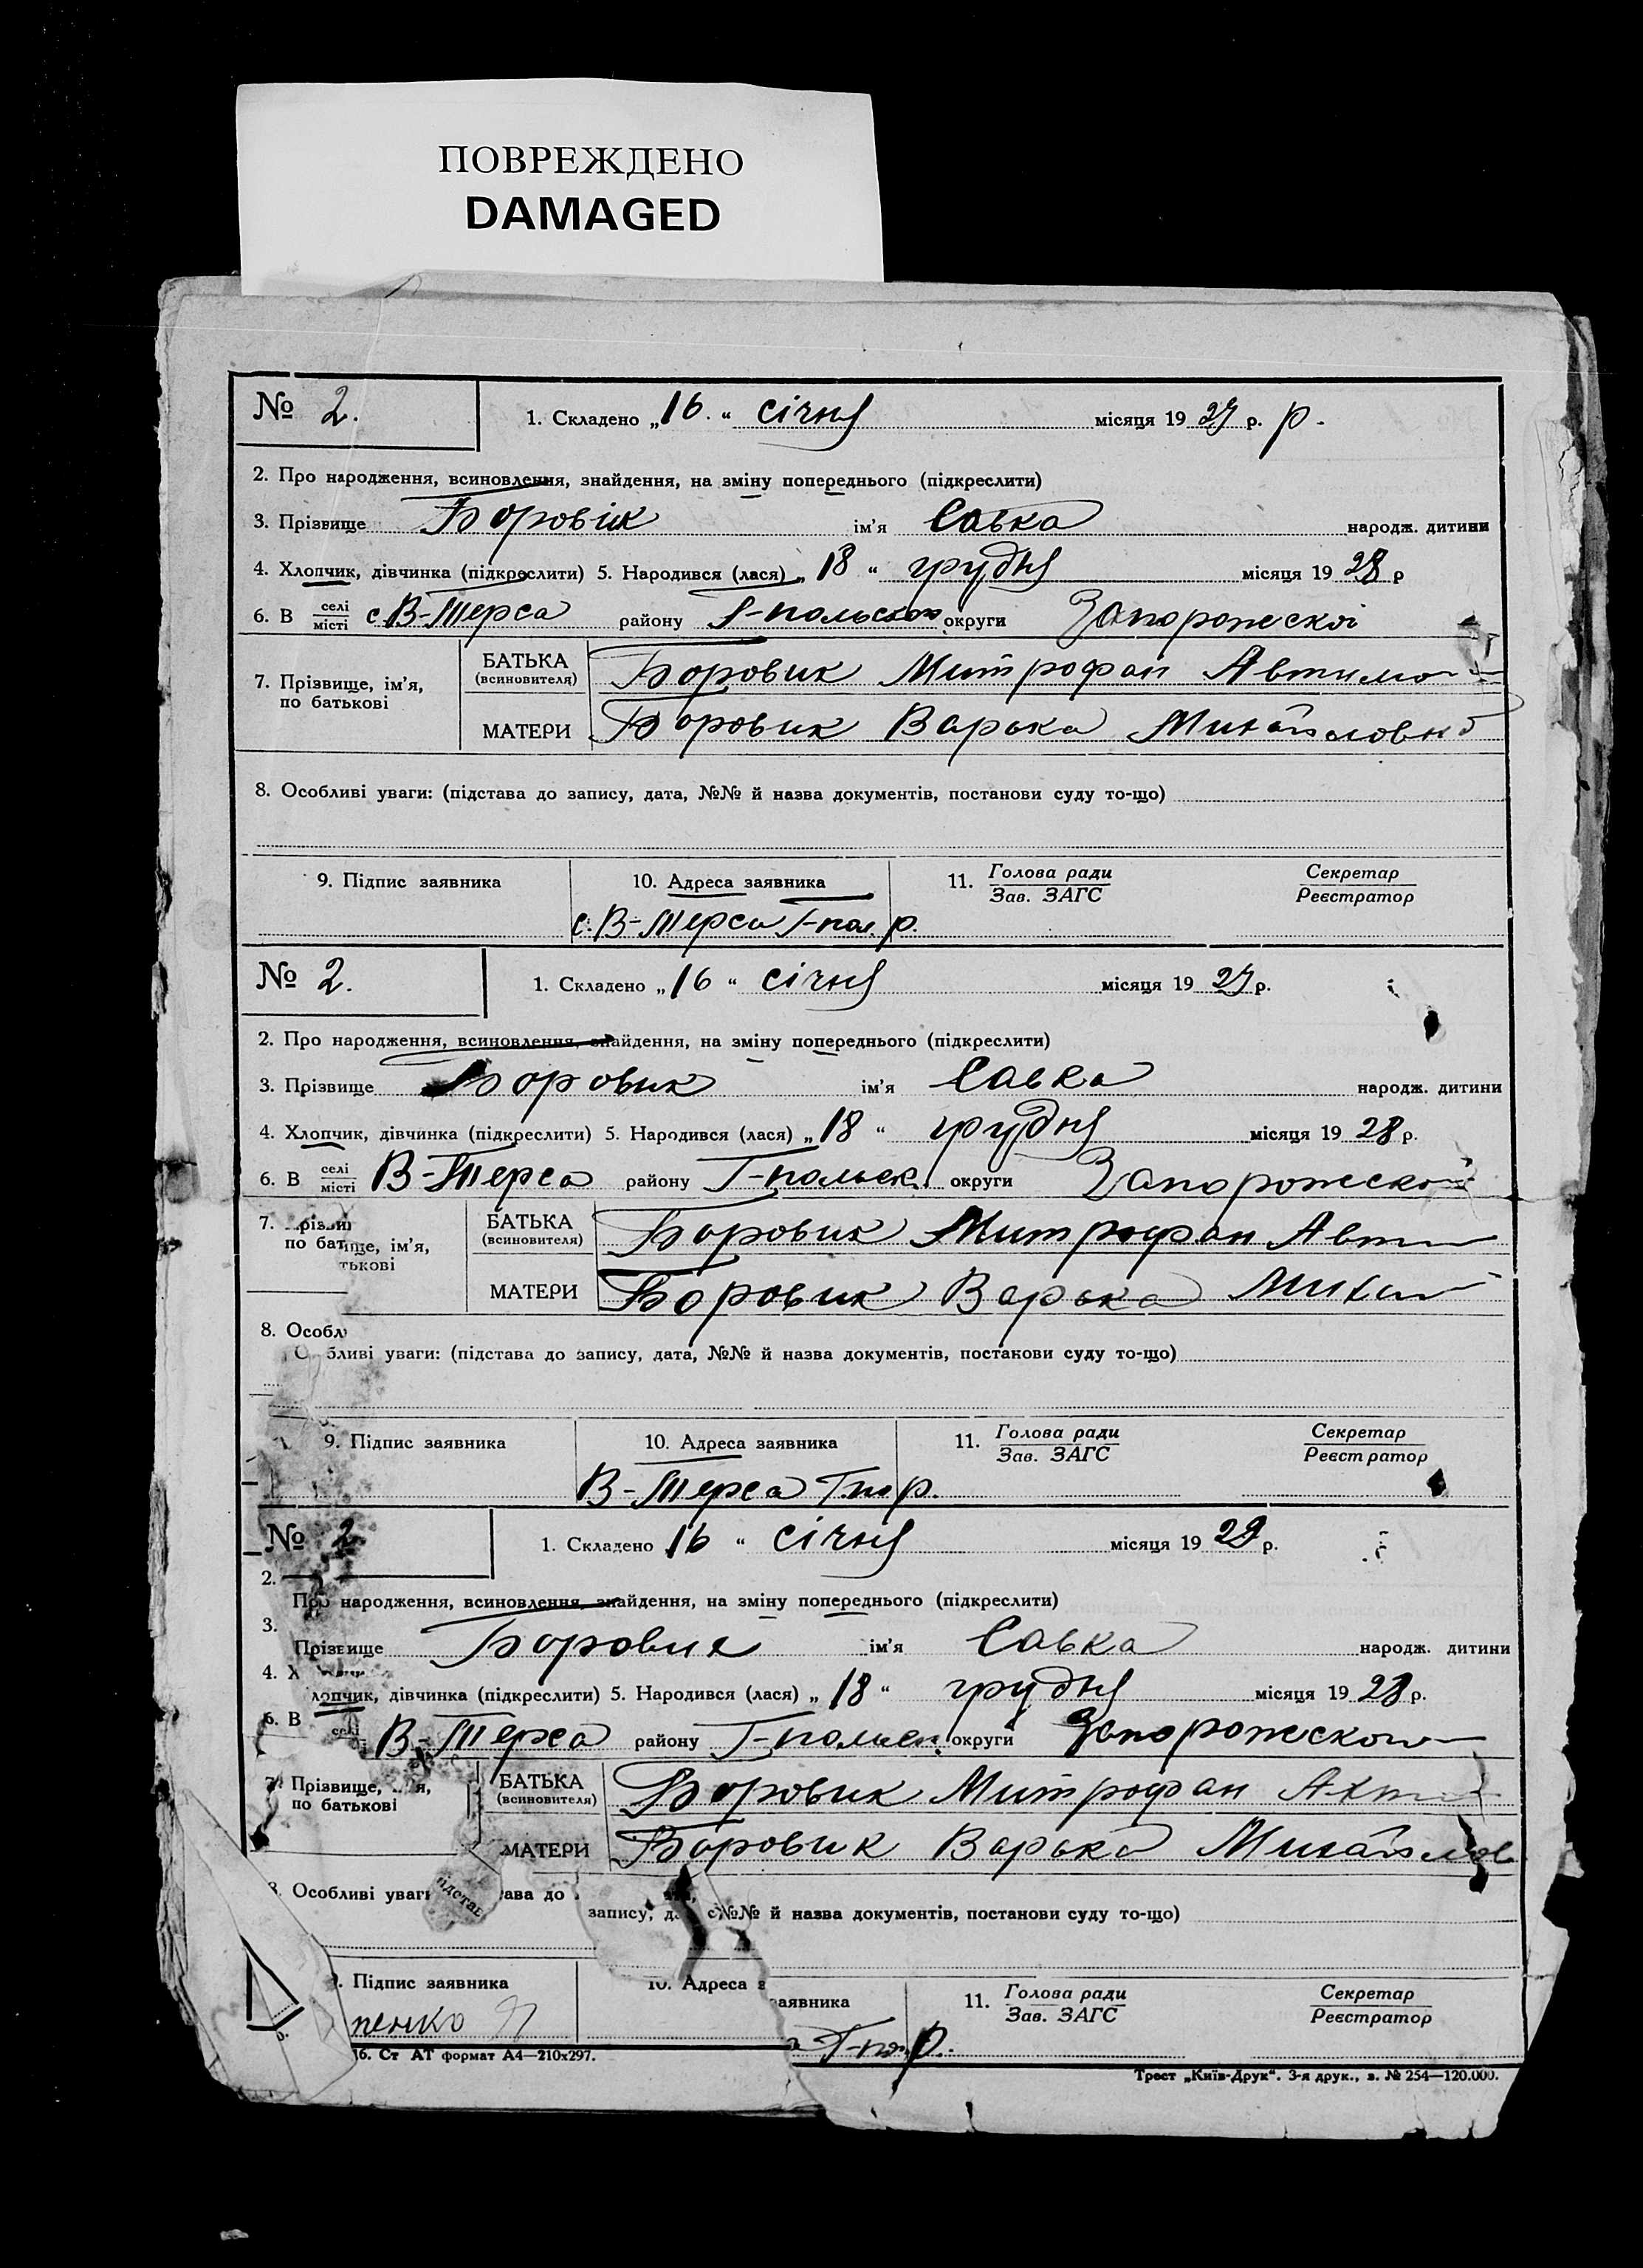 ПОВРЕЖДЕНО
DAMAGED
№ 2. 1. Складено „16.“ січня місяця 1929 р. р.
2. Про народження, всиновлення, знайдення, на зміну попереднього (підкреслити)
3. Прізвище Боровік ім'я Савка народж. дитини
4. Хлопчик, дівчинка (підкреслити) 5. Народився (лася) „18“ грудня місяця 1928 р
6. В селі місті с В-Терса району Г-польськ округи Запорожескоі
7. Прізвище, ім'я, по батькові БАТЬКА (всиновителя) Боровик Митрофан
МАТЕРИ Боровик Варька Михайловна
8. Особливі уваги: (підстава до запису, дата, №№ й назва документів, постанови суду то-що)
9. Підпис заявника 10. Адреса заявника 11. Голова ради Зав. ЗАГС Секретар Реєстратор
с. В-Терса Г-пол. р.
№ 2. 1. Складено „16“ січня місяця 1929 р.
2. Про народження, всиновлення, знайдення, на зміну попереднього (підкреслити)
3. Прізвище Боровик ім'я Савка народж. дитини
4. Хлопчик, дівчинка (підкреслити) 5. Народився (лася) „18“ грудня місяця 1928 р.
6. В селі місті В-Терса району Г-польск. округи Запорожеской
7. Прізвище, ім'я, по батькові БАТЬКА (всиновителя) Боровик Митрофан
МАТЕРИ Боровик Варька
8. Особливі уваги: (підстава до запису, дата, №№ й назва документів, постанови суду то-що)
9. Підпис заявника 10. Адреса заявника 11. Голова ради Зав. ЗАГС Секретар Реєстратор
В-Терса Г.п. р.
№ 2 1. Складено 16“ січня місяця 1929 р.
2. Про народження, всиновлення, знайдення, на зміну попереднього (підкреслити)
3. Прізвище Боровик ім'я Савка народж. дитини
4. Хлопчик, дівчинка (підкреслити) 5. Народився (лася) „18“ грудня місяця 1928 р.
6. В селі В-Терса району Г-польск. округи Запорожеской
7. Прізвище, по батькові БАТЬКА (всиновителя) Боровик Митрофан
МАТЕРИ Боровик Варька Михайлов
8. Особливі уваги до запису, №№ й назва документів, постанови суду то-що)
9. Підпис заявника 10. Адреса заявника 11. Голова ради Зав. ЗАГС Секретар Реєстратор
пенко Г-пол. р.
6. Ст АТ формат А4—210х297.
Трест „Київ-Друк“. 3-я друк., з. № 254—120.000.